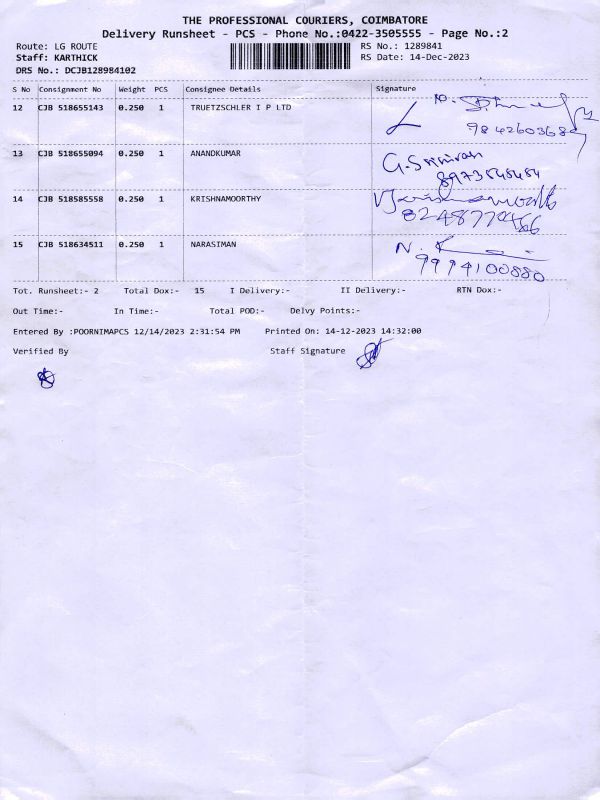 THE PROFESSIONAL COURIERS, COIMBATORE
Delivery Runsheet - PCS - Phone No.:0422-3505555 - Page No.:2
Route: LG ROUTE RS No.: 1289841
Staff: KARTHICK RS Date: 14-Dec-2023
DRS No.: DCJB128984102
S No Consignment No Weight PCS Consignee Details Signature
12 CJB 518655143 0.250 1 TRUETZSCHLER I P LTD
13 CJB 518655094 0.250 1 ANANDKUMAR G. Srinivasan
8973548484
14 CJB 518585558 0.250 1 KRISHNAMOORTHY
15 CJB 518634511 0.250 1 NARASIMAN N.
9994100880
Tot. Runsheet:- 2 Total Dox:- 15 I Delivery:- II Delivery:- RTN Dox:-
Out Time:- In Time:- Total POD:- Delvy Points:-
Entered By :POORNIMAPCS 12/14/2023 2:31:54 PM Printed On: 14-12-2023 14:32:00
Verified By Staff Signature